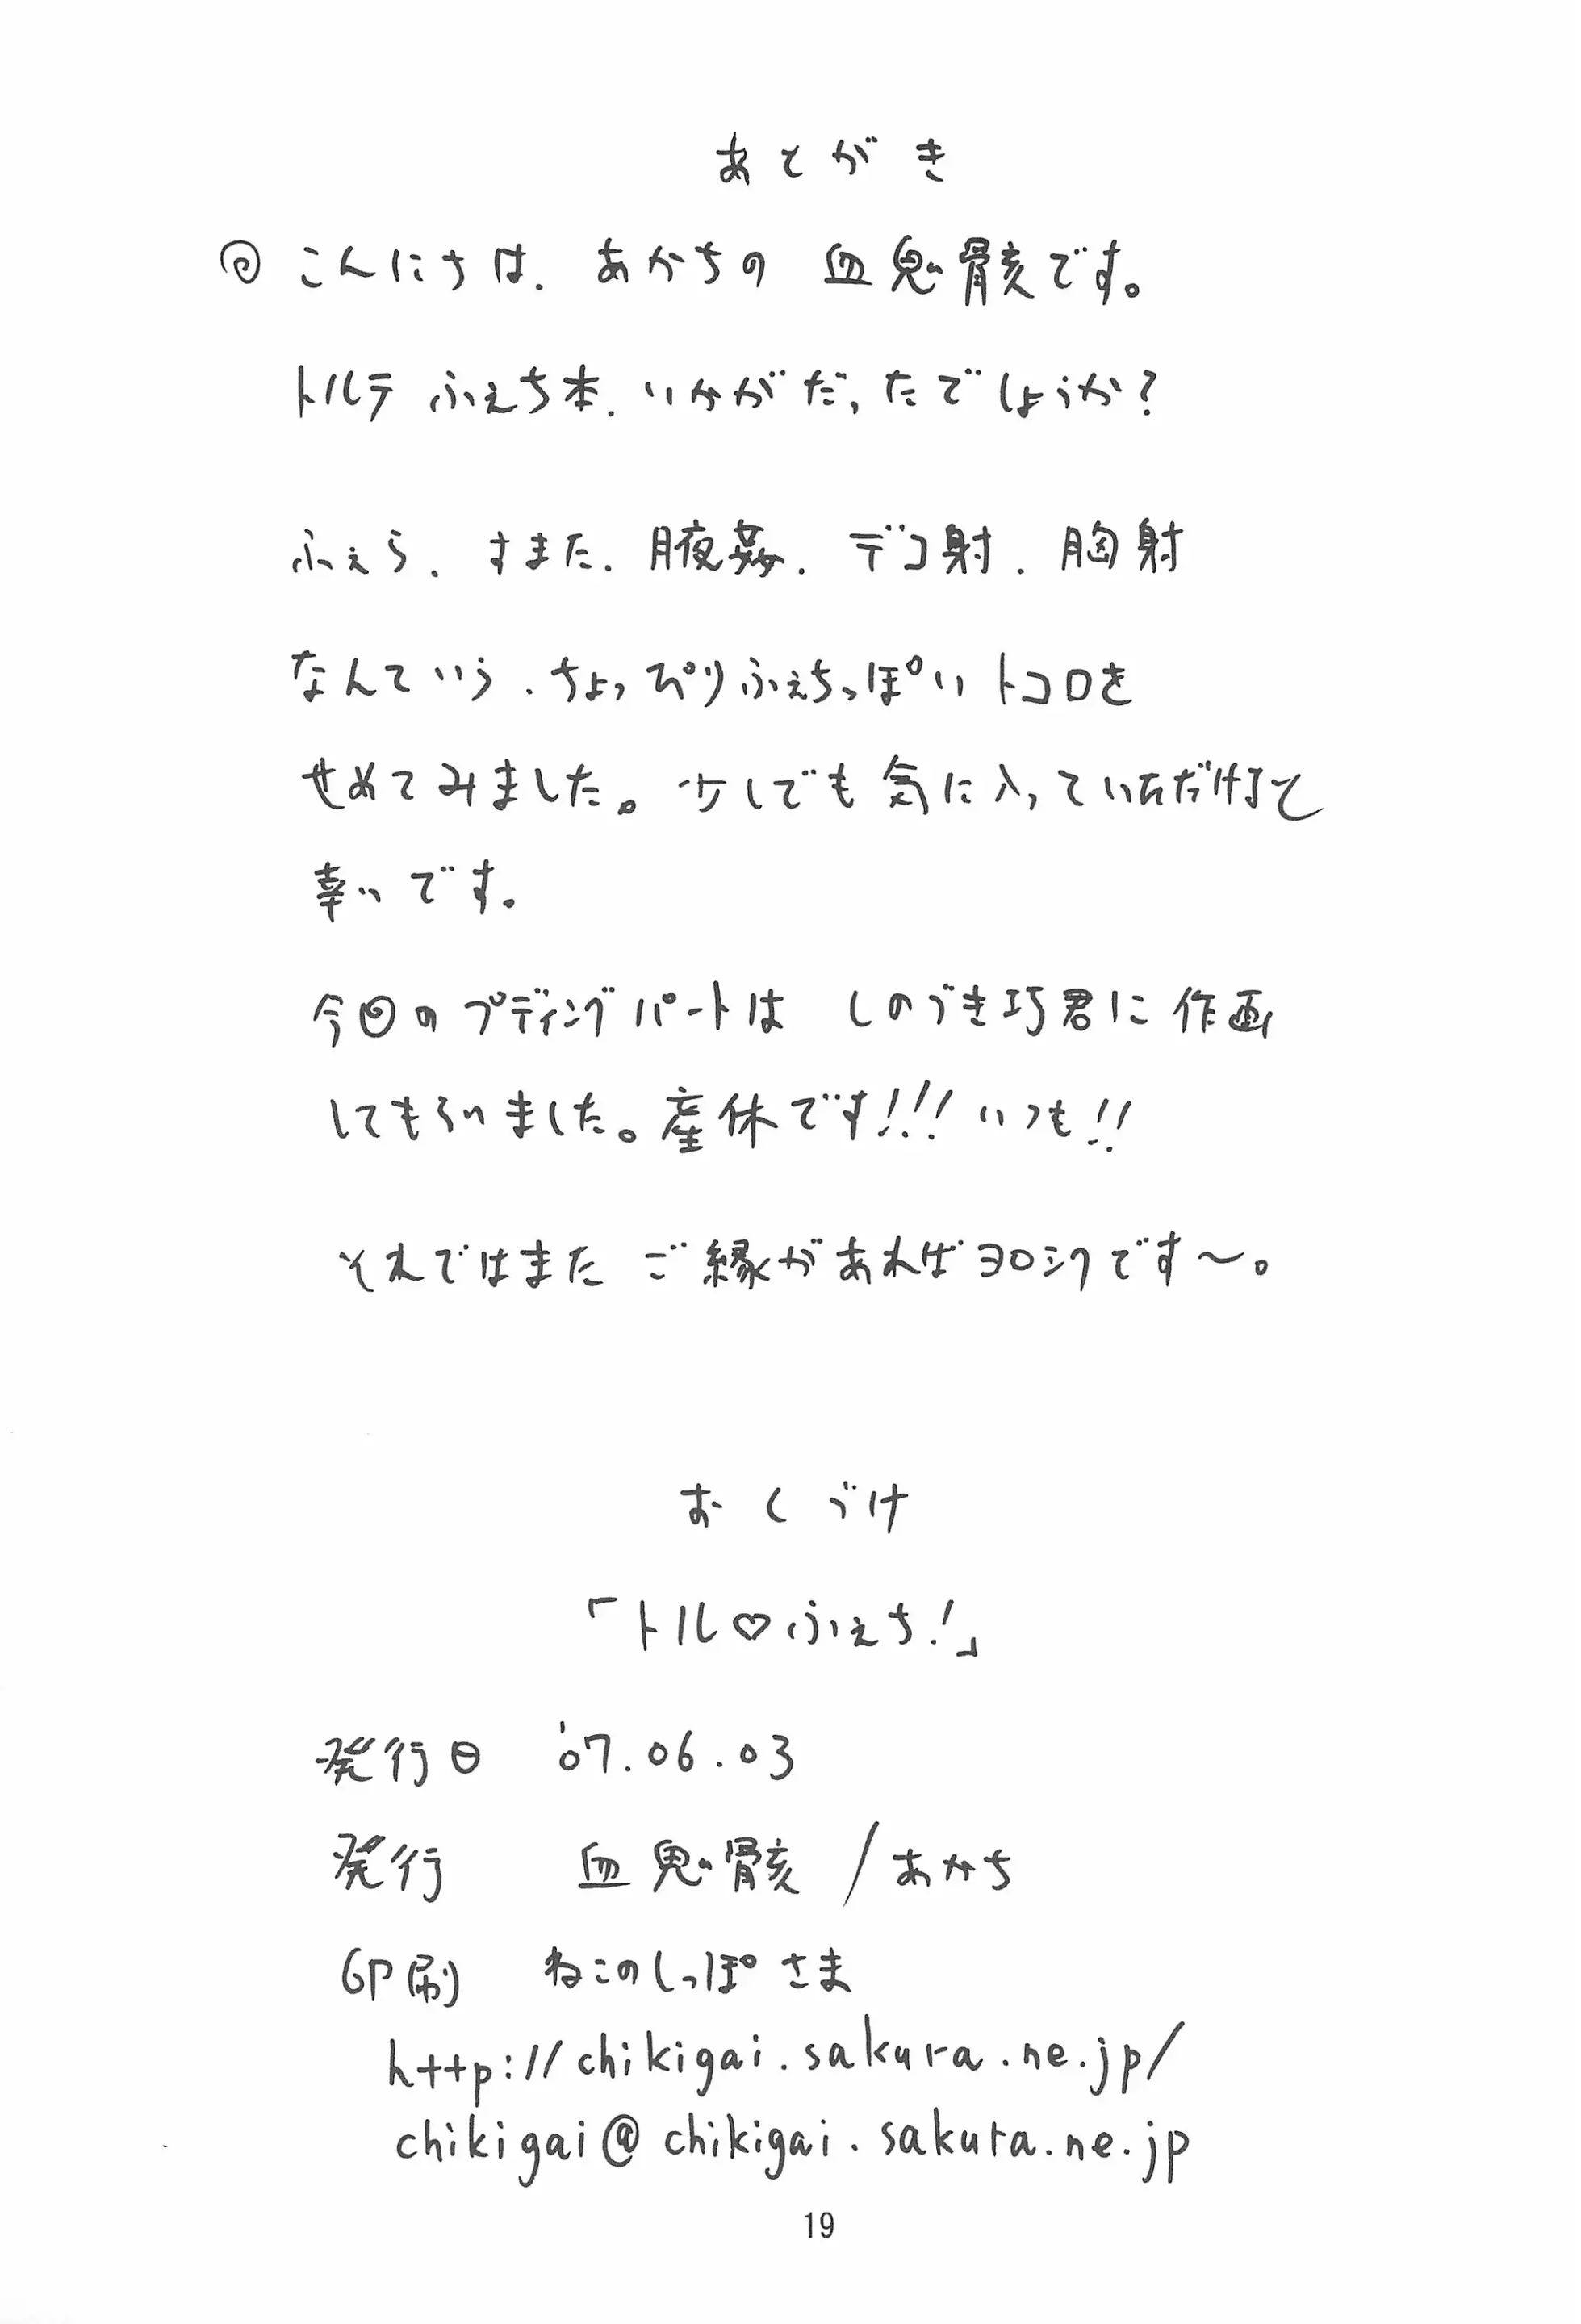 あとがき
◎こんにちは、あかちの 血鬼骸です。
トルテ ふぇち本、いかがだったでしょうか？
ふぇら、すまた、腋姦、デコ射、胸射
なんていう、ちょっぴりふぇちっぽいトコロを
せめてみました。少しでも気に入っていただけると
幸いです。
今回のプディングパートは しのづき巧君に作画
してもらいました。産休です!!! いつも!!
それではまた ご縁があればヨロシクです〜。
おくづけ
「トル♡ふぇち!」
発行日 '07.06.03
発行 血鬼骸／あかち
印刷 ねこのしっぽさま
http://chikigai.sakura.ne.jp/
chikigai@chikigai.sakura.ne.jp
19